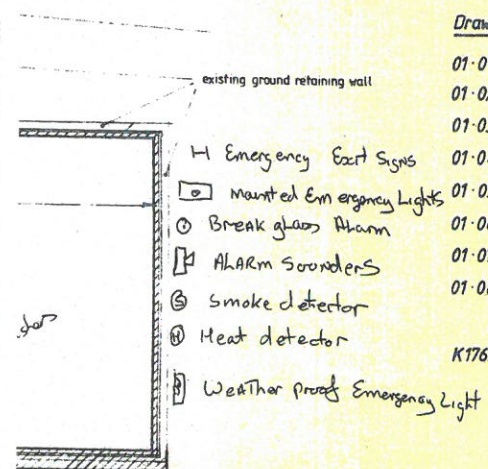 existing ground retaining wall
H Emergency Exit Signs
Mounted Emergency Lights
Break glass Alarm
ALARM Sounders
S Smoke detector
H Heat detector
Weather proof Emergency Light
01·0
01·0
01·0
01·0
01·0
01·0
01·0
K176